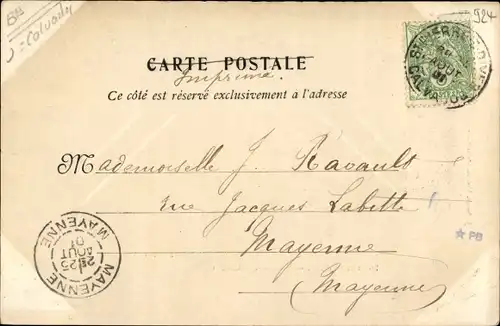 924
Calvados
CARTE POSTALE
Imprimé.
Ce côté est réservé exclusivement a l'adresse
CALVADOS
AOUT
Mademoiselle J. Ravault
rue Jacques Labitte
Mayenne
(Mayenne)
PB
MAYENNE
25
AOUT
01
MAYENNE